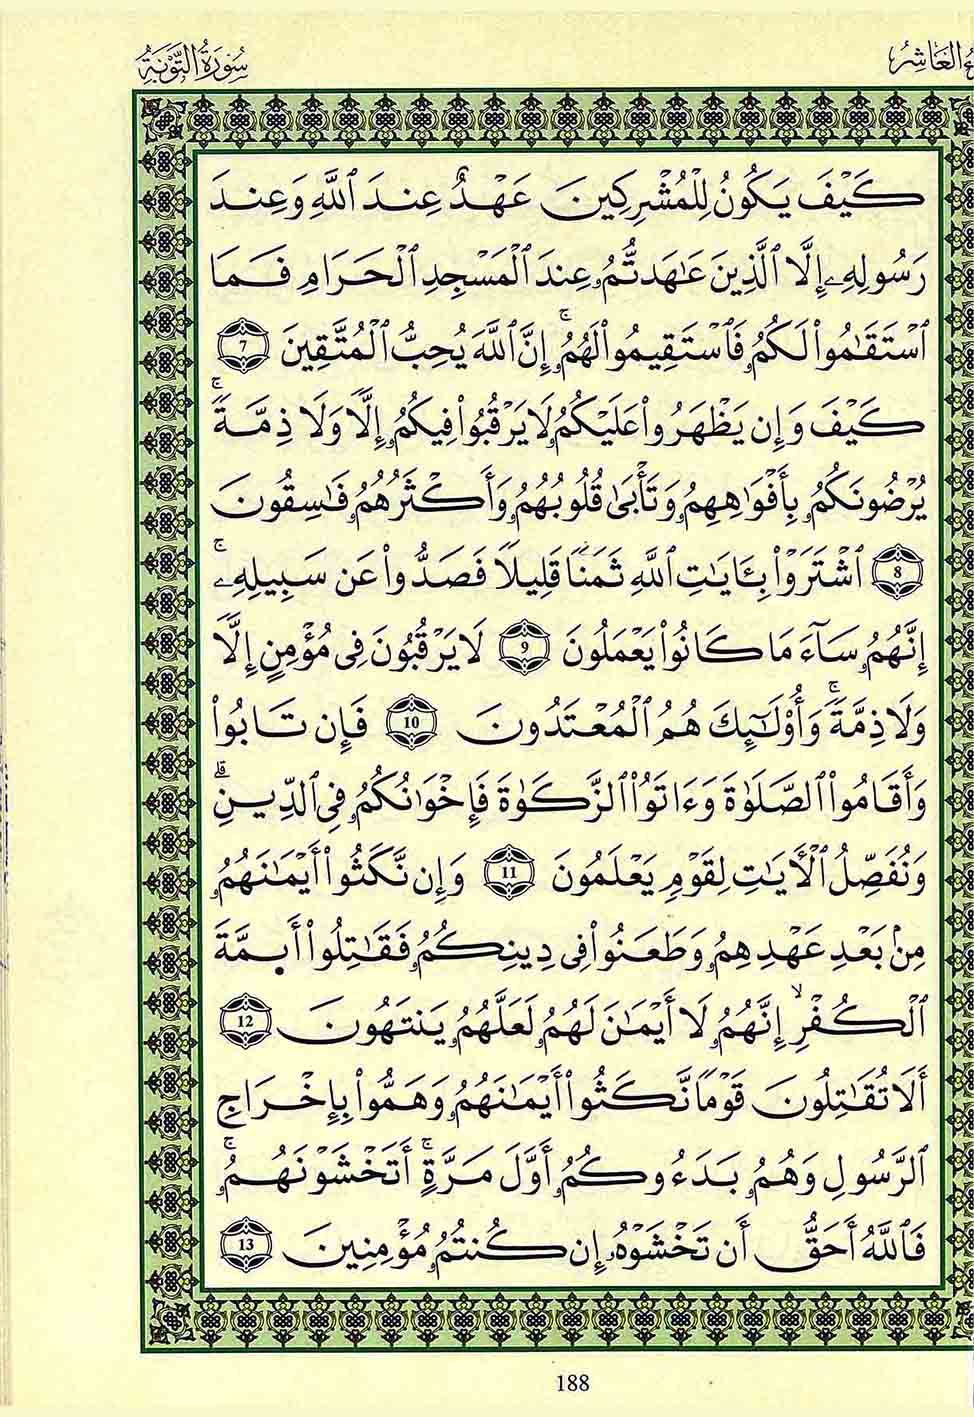 ءُ الْعَاشِرُ
سُورَةُ التَّوْبَةِ
كَيْفَ يَكُونُ لِلْمُشْرِكِينَ عَهْدٌ عِندَ ٱللَّهِ وَعِندَ
رَسُولِهِۦ إِلَّا ٱلَّذِينَ عَٰهَدتُّمُۥ عِندَ ٱلْمَسْجِدِ ٱلْحَرَامِ فَمَا
ٱسْتَقَٰمُواْ لَكُمُۥ فَٱسْتَقِيمُواْ لَهُمُۥٓۚ إِنَّ ٱللَّهَ يُحِبُّ ٱلْمُتَّقِينَ 7
كَيْفَ وَإِن يَظْهَرُواْ عَلَيْكُمُۥ لَا يَرْقُبُواْ فِيكُمُۥ إِلًّا وَلَا ذِمَّةًۚ
يُرْضُونَكُمُۥ بِأَفْوَٰهِهِمُۥ وَتَأْبَىٰ قُلُوبُهُمُۥ وَأَكْثَرُهُمُۥ فَٰسِقُونَ
8 ٱشْتَرَوْاْ بِـَٔايَٰتِ ٱللَّهِ ثَمَنًا قَلِيلًا فَصَدُّواْ عَن سَبِيلِهِۦۚ
إِنَّهُمُۥ سَآءَ مَا كَانُواْ يَعْمَلُونَ 9 لَا يَرْقُبُونَ فِى مُؤْمِنٍ إِلًّا
وَلَا ذِمَّةًۚ وَأُوْلَٰٓئِكَ هُمُ ٱلْمُعْتَدُونَ 10 فَإِن تَابُواْ
وَأَقَامُواْ ٱلصَّلَوٰةَ وَءَاتَوُاْ ٱلزَّكَوٰةَ فَإِخْوَٰنُكُمُۥ فِى ٱلدِّينِۗ
وَنُفَصِّلُ ٱلْأٓيَٰتِ لِقَوْمٍ يَعْلَمُونَ 11 وَإِن نَّكَثُواْ أَيْمَٰنَهُمُۥ
مِنۢ بَعْدِ عَهْدِهِمُۥ وَطَعَنُواْ فِى دِينِكُمُۥ فَقَٰتِلُواْ أَئِمَّةَ
ٱلْكُفْرِۙ إِنَّهُمُۥ لَا أَيْمَٰنَ لَهُمُۥ لَعَلَّهُمُۥ يَنتَهُونَ 12
أَلَا تُقَٰتِلُونَ قَوْمًا نَّكَثُواْ أَيْمَٰنَهُمُۥ وَهَمُّواْ بِإِخْرَاجِ
ٱلرَّسُولِ وَهُمُۥ بَدَءُوكُمُۥ أَوَّلَ مَرَّةٍۚ أَتَخْشَوْنَهُمُۥۚ
فَٱللَّهُ أَحَقُّ أَن تَخْشَوْهُ إِن كُنتُمُۥ مُؤْمِنِينَ 13
188